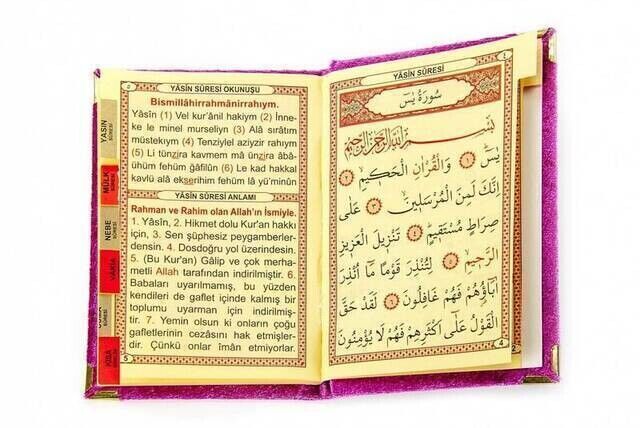 YÂSÎN SÛRESİ OKUNUŞU
Bismillâhirrahmânirrahym.
Yâsîn (1) Vel kur'ânil hakiym (2) İnne-
ke le minel murseliyn (3) Alâ sırâtım
müstekıym (4) Tenziylel aziyzir rahıym
(5) Li tünzira kavmem mâ ünzira âbâ-
ühüm fehüm gâfilûn (6) Le kad hakkal
kavlü alâ ekserihim fehüm lâ yü'minûn
YÂSÎN SÛRESİ ANLAMI
Rahman ve Rahim olan Allah'ın İsmiyle.
1. Yâsîn, 2. Hikmet dolu Kur'an hakkı
için, 3. Sen şüphesiz peygamberler-
densin. 4. Dosdoğru yol üzerindesin.
5. (Bu Kur'an) Gâlip ve çok merha-
metli Allah tarafından indirilmiştir. 6.
Babaları uyarılmamış, bu yüzden
kendileri de gaflet içinde kalmış bir
toplumu uyarman için indirilmiş-
tir. 7. Yemin olsun ki onların çoğu
gafletlerinin cezasını hak etmişler-
dir. Çünkü onlar iman etmiyorlar.
5
YASIN
SÛRESİ
MÜLK
SÛRESİ
NEBE
SÛRESİ
KISA
YÂSÎN SÛRESİ
سُورَةُ يٰسۤ
بِسْــــمِ اللّٰهِ الرَّحْمٰنِ الرَّحِيمِ
يٰسۤ ﴿١﴾ وَالْقُرْاٰنِ الْحَكِيمِۙ ﴿٢﴾
اِنَّكَ لَمِنَ الْمُرْسَلِينَۙ ﴿٣﴾ عَلٰى
صِرَاطٍ مُسْتَقِيمٍۜ ﴿٤﴾ تَنْزِيلَ الْعَزِيزِ
الرَّحِيمِۙ ﴿٥﴾ لِتُنْذِرَ قَوْمًا مَۤا اُنْذِرَ
اٰبَۤاؤُهُمْ فَهُمْ غَافِلُونَ ﴿٦﴾ لَقَدْ حَقَّ
الْقَوْلُ عَلٰۤى اَكْثَرِهِمْ فَهُمْ لَا يُؤْمِنُونَ
4